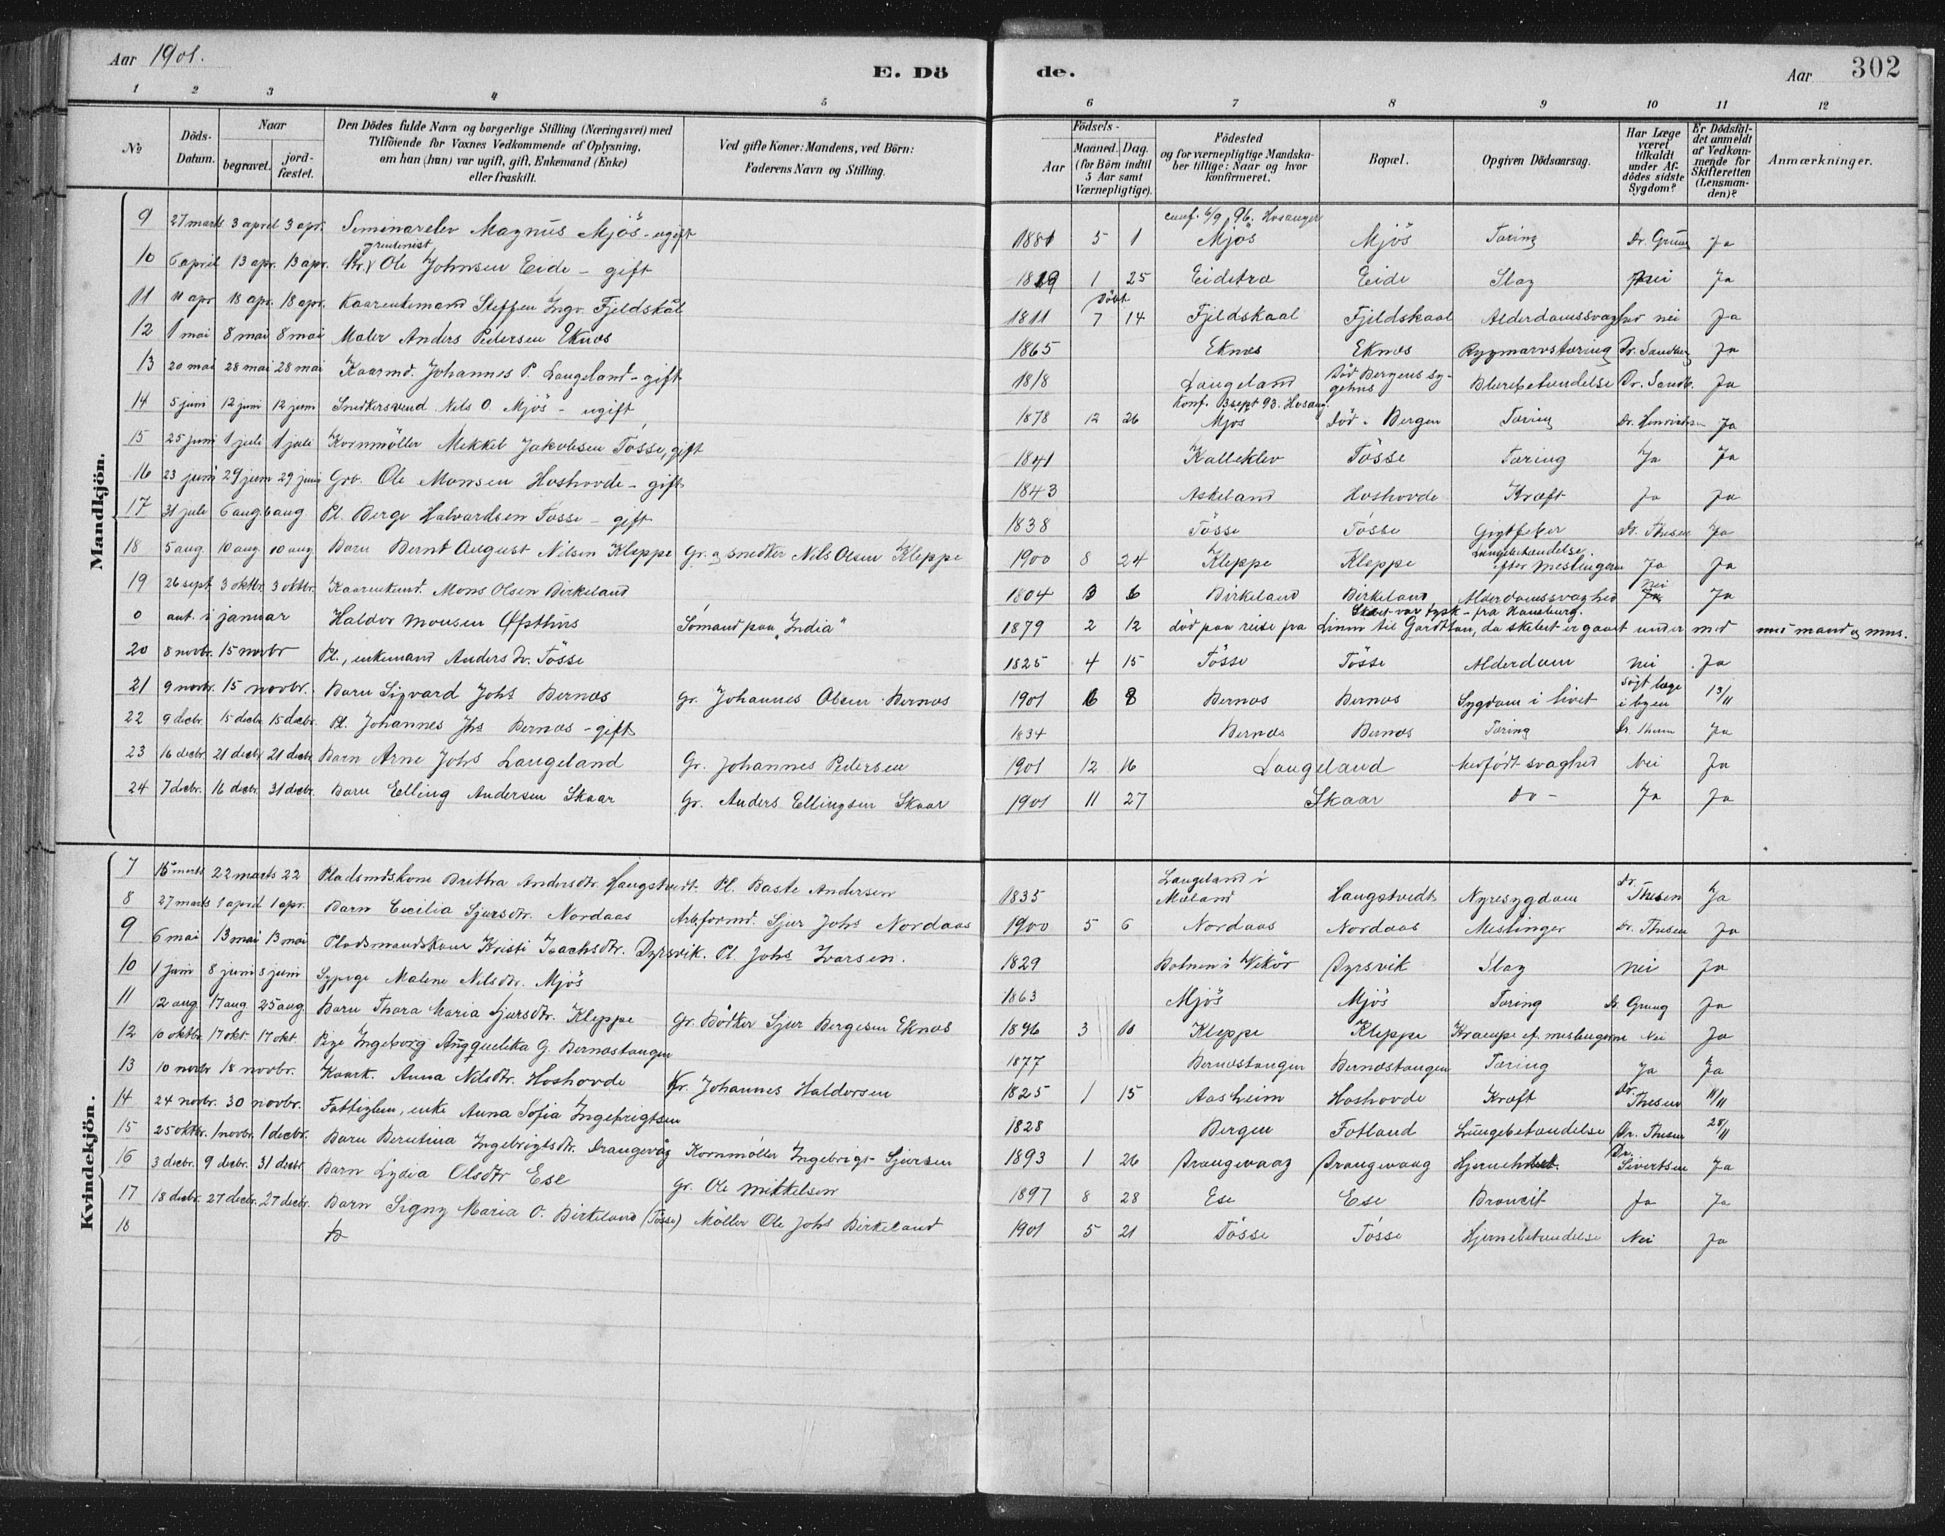 Aar 1901.
E. Dö de.
Aar 302
1 2 3 4 5 6 7 8 9 10 11 12
No
Döds-Datum.
Naar
begravet.
jord-fæstet.
Den Dödes fulde Navn og borgerlige Stilling (Næringsvei) med
Tilföiende for Voxnes Vedkommende af Oplysning,
om han (hun) var ugift, gift, Enkemand (Enke)
eller fraskilt.
Ved gifte Koner: Mandens, ved Börn:
Faderens Navn og Stilling.
Födsels-
Aar
Maaned. Dag.
(for Börn indtil
5 Aar samt
Værnepligtige).
Födested
og for værnepligtige Mandska-
ber tillige: Naar og hvor
konfirmeret.
Bopæl.
Opgiven Dödsaarsag.
Har Læge
været
tilkaldt
under Af-
dödes sidste
Sygdom?
Er Dödsfal-
det anmeldt
af Vedkom-
mende for
Skifteretten
(Lensman-
den)?
Anmærkninger.
Mandkjön.
9 27 marts 3 april 3 apr. Seminarelev Magnus Mjös - ugift 1881 5 1 conf. 6/9 96. Hosanger Mjös Mjös Tæring Dr. Grung Ja
10 6 april 13 apr. 13 apr. Ole Johnsen Eide - gift 1819 1 25 Eidetræ Eide Slag nei Ja
11 11 apr 18 apr. 18 apr. Kaarenkemand Steffen Ingv. Fjeldskål 1811 Döbt 7 14 Fjeldskaal Fjeldskaal Alderdomssvaghed nei Ja
12 1 mai 8 mai 8 mai Maler Anders Pedersen Eknæs 1865 Eknæs Eknæs Rygmarvstæring Dr. Sandberg Ja
13 20 mai 28 mai 28 mai Kaarmd. Johannes P. Langeland - gift 1818 Langeland Död Bergens sygehus Blærebetændelse Dr. Sandb. Ja
14 5 juni 12 juni 12 juni Snedkersvend Nils O. Mjös - ugift 1878 12 26 Konf. 3 sept 93. Hosang. Mjös Död - Bergen Tæring Dr. Ja
15 25 juni 1 juli 1 juli Kornmöller Mikkel Jakobsen Tösse, gift 1841 Kalleklev Tösse Tæring Ja Ja
16 23 juni 29 juni 29 juni Grb. Ole Monsen Hoshovde - gift 1843 Askeland Hoshovde Kræft Ja Ja
17 31 juli 6 aug 6 aug Pl. Berge Halvardsen Tösse - gift 1838 Tösse Tösse Gigtfeber Dr. Thesen Ja
18 5 aug. 10 aug. 10 aug Barn Bernt August Nilsen Kleppe Gr. og snedker Nils Olsen Kleppe 1900 8 24 Kleppe Kleppe Lungebetændelse efter meslingerne Ja Ja
19 26 sept 3 oktbr 3 oktbr. Kaarenkemd. Mons Olsen Birkeland 1804 3 6 Birkeland Birkeland Alderdomssvaghed nei Ja
0 ant. i januar Haldor Monsen Ofsthus Sömand paa "India" 1879 2 12 död paa reise fra til da skibet er gaaet under med mand og mus. Skibet var tysk - fra Hamburg.
20 8 novbr. 15 novbr Pl., enkemand Anders Iv. Tösse 1825 4 15 Tösse Tösse Alderdom nei Ja
21 9 novbr. 15 novbr. Barn Sigvard Johs Bernæs Gr. Johannes Olsen Bernæs 1901 6 8 Bernæs Bernæs Sygdom i livet sögt læge i byen 13/11
22 9 decbr. 15 decbr 15 decbr. Pl. Johannes Jhs Bernæs - gift 1834 Bernæs Bernæs Tæring Dr. Ja
23 16 decbr. 21 decbr 21 decbr Barn Arne Johs Langeland Gr. Johannes Pedersen 1901 12 16 Langeland Medfödt svaghed Nei Ja
24 7 decbr. 16 decbr 31 decbr. Barn Elling Andersen Skaar Gr. Anders Ellingsen Skaar 1901 11 27 Skaar do - Ja Ja
Kvindekjön.
7 15 marts 22 marts 22 Pladsmdskone Bretha Andersdtr. Haugstvedt Pl. Baste Andersen 1835 Langeland i Mæland Haugstvedt Nyresygdom Dr. Thesen Ja
8 27 marts 1 april 1 apr. Barn Cecilia Sjursdtr. Nordaas Arbformd. Sjur Johs Nordaas 1900 5 6 Nordaas Nordaas Meslinger Dr. Thesen Ja
9 6 mai 13 mai 13 mai Pladsmandskone Kristi Isachsdtr. Dyrsvik. Pl. Johs Ivarsen. 1829 Botnen i Vikör Dyrsvik Slag nei Ja
10 1 juni 8 juni 8 juni Sypige Malene Nilsdtr. Mjös 1863 Mjös Mjös Tæring Dr. Grung Ja
11 12 aug 17 aug 25 aug Barn Thora Maria Sjursdtr. Kleppe Gr. Bödker Sjur Bergesen Eknæs 1896 3 10 Kleppe Kleppe Krampe ef. meslingerne Nei Ja
12 10 oktbr. 17 okt. 17 okt. Pige Ingeborg Anquelika G. Bernæstangen 1877 Bernæstangen Bernæstangen Tæring Ja Ja
13 10 novbr 18 novbr. Kaark. Anna Nilsdtr. Hoshovde Kr. Johannes Haldorsen 1825 1 15 Aasheim Hoshovde Kræft Dr. Thesen 11/11
14 24 novbr. 30 novbr. Fattiglem, enke Anna Sofia Ingebrigtsen 1828 Bergen Fotland Lungebetændelse Dr. Thesen 28/11
15 25 oktbr. 1 novbr. 1 decbr. Barn Berntina Ingebrigtsdtr. Drangevåg Kornmöller Ingebrigt Sjursen 1893 1 26 Drangevaag Drangevaag Dr. Sivertsen Ja
16 3 decbr. 9 decbr. 31 decbr Barn Lydia Olsdtr Ese Gr. Ole Mikkelsen 1897 8 28 Ese Ese Broncit Ja Ja
17 18 decbr. 27 decbr. 27 decbr. Barn Signy Maria O. Birkeland (Tösse) Möller Ole Johs Birkeland 1901 5 21 Tösse Tösse Hjernebetændelse Nei Ja
18